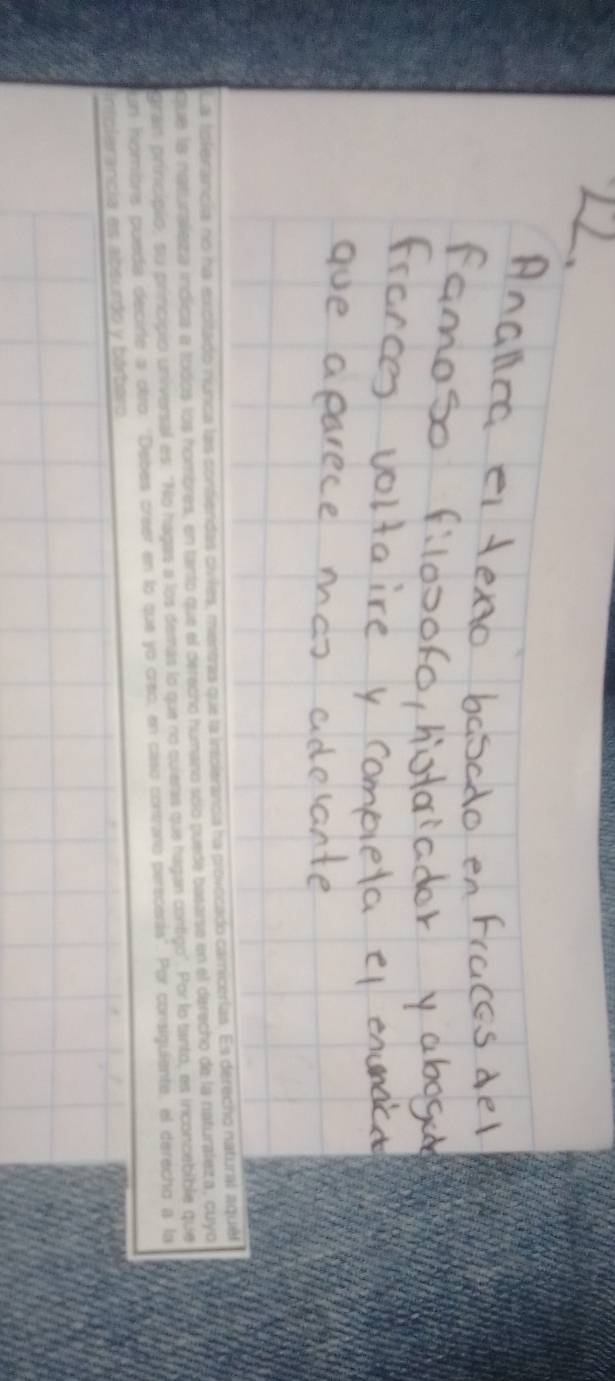 22.
Analiza el texto basado en fraces del
famoso filosofo, historiador y abogado
frances voltaire y completa el enunciado
que aparece mas adelante
La tolerancia no ha excitado nunca las contiendas civiles, mientras que la intolerancia ha provocado carnicerías. Es derecho natural aquél
que la naturaleza indica a todos los hombres, en tanto que el derecho humano sólo puede basarse en el derecho de la naturaleza, cuyo
gran principio, su principio universal es: "No hagas a los demás lo que no quieras que hagan contigo". Por lo tanto, es inconcebible que
un hombre pueda decirle a otro: "Debes creer en lo que yo creo, en caso contrario perecerás". Por consiguiente, el derecho a la
intolerancia es absurdo y bárbaro.